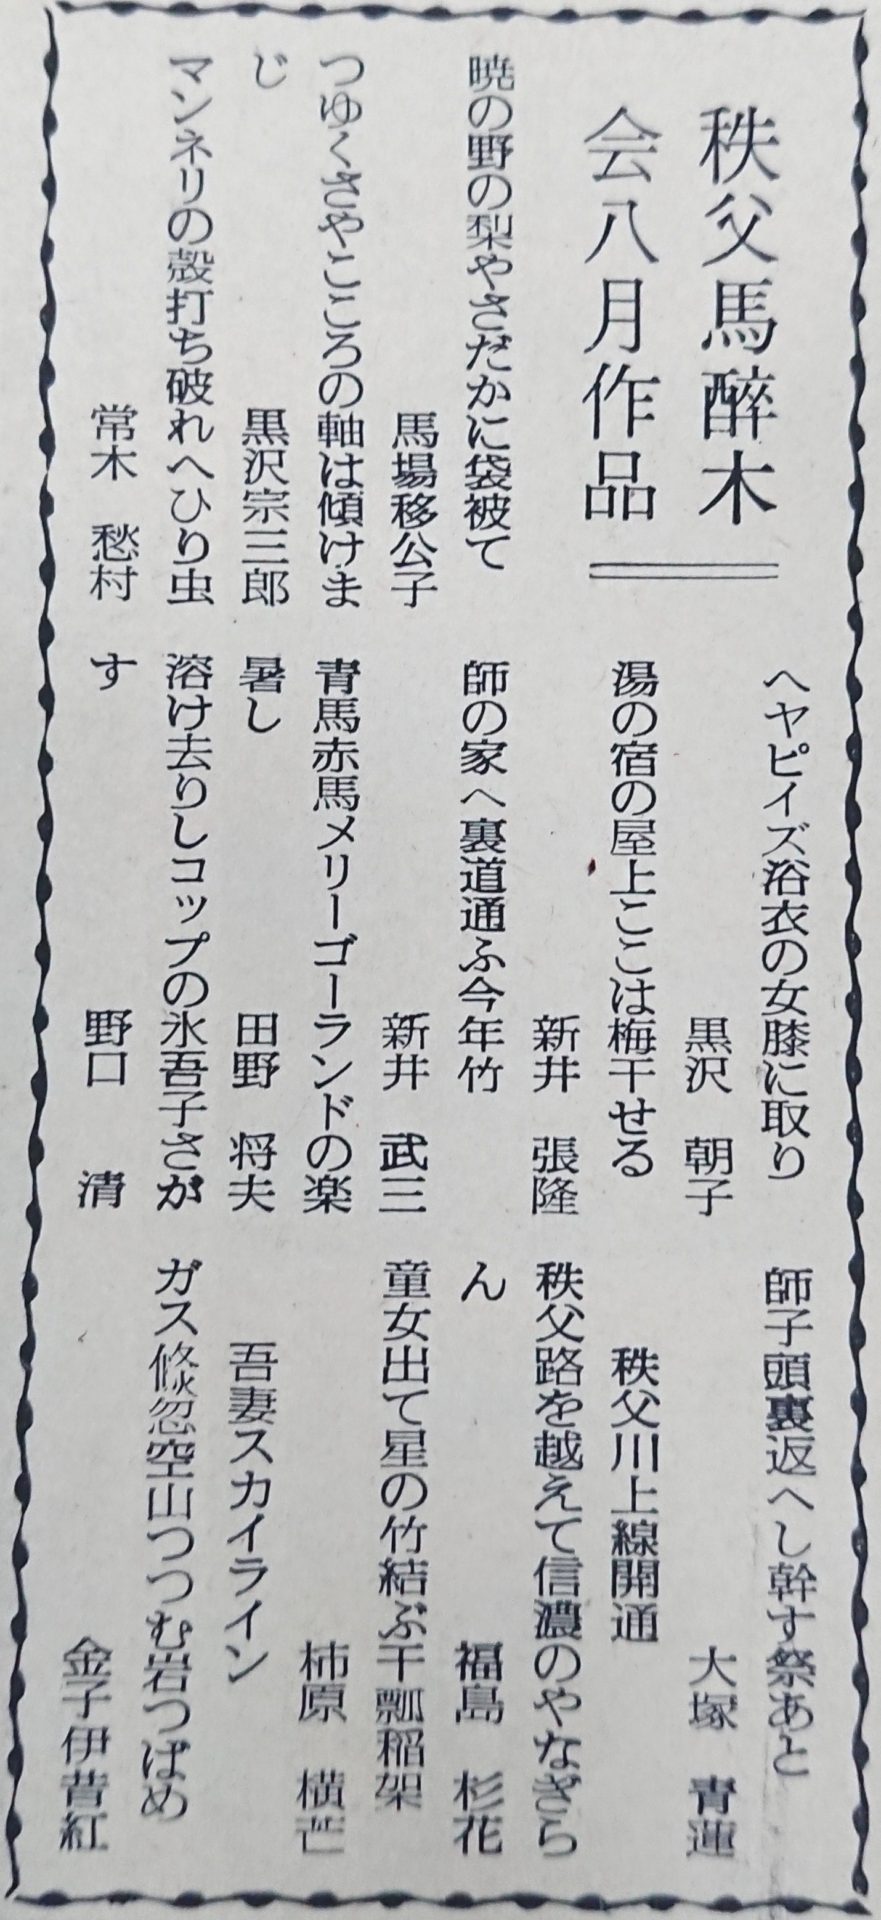 秩父馬酔木
会八月作品
暁の野の梨やさだかに袋被て
馬場移公子
つゆくさやこころの軸は傾けま
じ
黒沢宗三郎
マンネリの殻打ち破れへひり虫
常木 愁村
ヘヤピイズ浴衣の女膝に取り
黒沢 朝子
湯の宿の屋上ここは梅干せる
新井 張隆
師の家へ裏道通ふ今年竹
新井 武三
青馬赤馬メリーゴーランドの楽
暑し
田野 将夫
溶け去りしコップの氷吾子さが
す
野口 清
師子頭裏返へし幹す祭あと
大塚 青蓮
秩父川上線開通
秩父路を越えて信濃のやなぎら
ん
福島 杉花
童女出て星の竹結ぶ干瓢稲架
柿原 横芒
吾妻スカイライン
ガス倏忽空山つつむ岩つばめ
金子伊昔紅